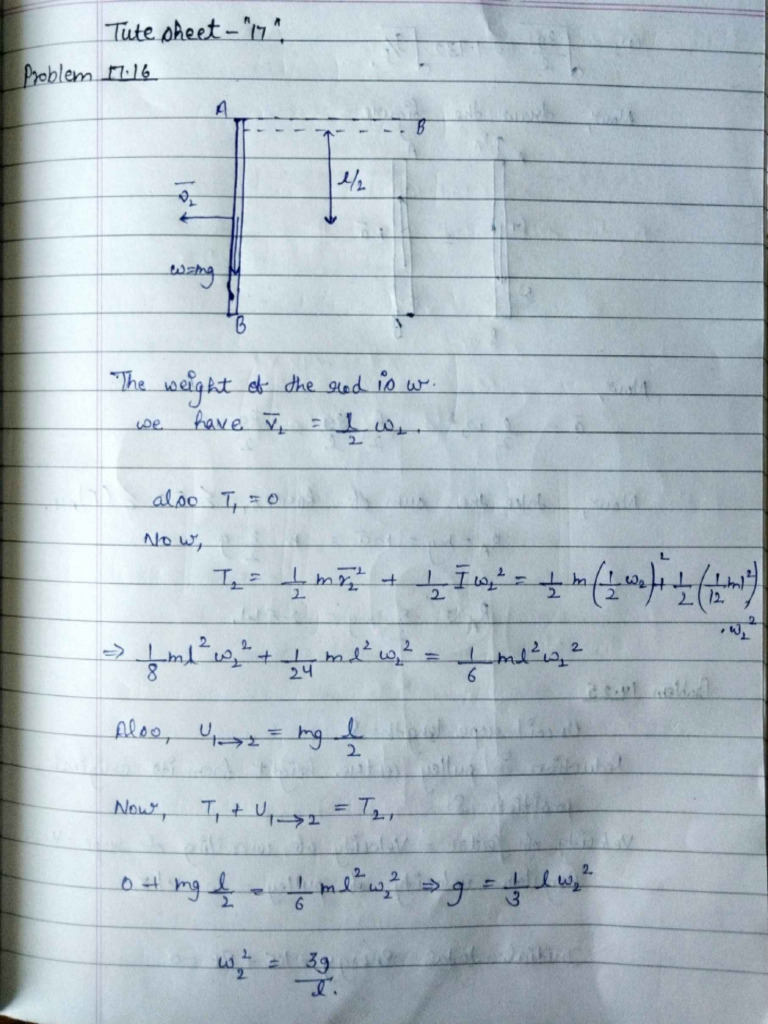 Tute sheet - "17".
Problem 17.16
A
B
l/2
v̅₂
w=mg
B
The weight of the rod is w.
we have v̅₂ = l/2 ω₂.
also T₁ = 0
Now,
T₂ = 1/2 m v̅₂² + 1/2 I̅ ω₂² = 1/2 m (l/2 ω₂)² + 1/2 (1/12 ml²)
. ω₂²
⇒ 1/8 ml² ω₂² + 1/24 ml² ω₂² = 1/6 ml² ω₂²
Also, U₁→₂ = mg l/2
Now, T₁ + U₁→₂ = T₂,
0 + mg l/2 = 1/6 ml² ω₂² ⇒ g = 1/3 l ω₂²
ω₂² = 3g/l.